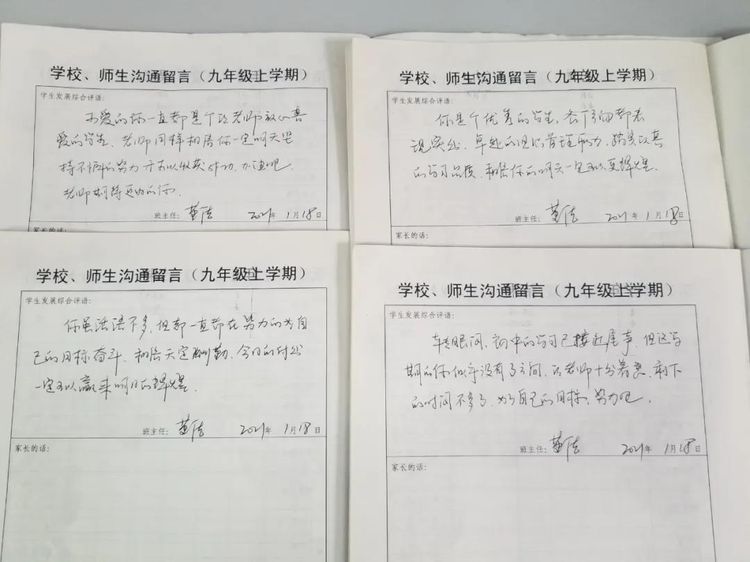 学校、师生沟通留言（九年级上学期）
学生发展综合评语:
可爱的你一直都是个让老师放心喜
爱的学生，老师同样相信你一定明天坚
持不懈的努力一定可以收获成功，加油吧，
老师期待更好的你。
班主任: 2021年 1月18日
家长的话:
学校、师生沟通留言（九年级上学期）
学生发展综合评语:
你是个优秀的学生，各个方面都表
现突出，卓越的班级管理能力，踏实认真
的学习品质，相信你的明天一定可以更辉煌。
班主任: 2021年 1月18日
家长的话:
学校、师生沟通留言（九年级上学期）
学生发展综合评语:
你虽话语不多，但却一直都在努力的为自
己的目标奋斗，相信天定酬勤，今日的付出
一定可以赢来明日的辉煌。
班主任: 2021年 1月18日
家长的话:
学校、师生沟通留言（九年级上学期）
学生发展综合评语:
转眼间，初中的学习已接近尾声，但这学
期的你似乎没有了方向，让老师十分着急，剩下
的时间不多了，为了自己的目标，努力吧。
班主任: 2021年 1月18日
家长的话: